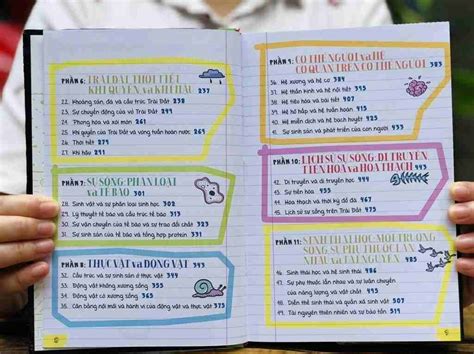 PHẦN 6: TRÁI ĐẤT, THỜI TIẾT,
KHÍ QUYỂN và KHÍ HẬU 237
22. Khoáng sản, đá và cấu trúc Trái Đất 238
23. Sự chuyển động của vỏ Trái Đất 249
24. Phong hóa và xói mòn 261
25. Khí quyển của Trái Đất và vòng tuần hoàn nước 269
26. Thời tiết 279
27. Khí hậu 291
PHẦN 7: SỰ SỐNG: PHÂN LOẠI
và TẾ BÀO 301
28. Sinh vật và sự phân loại sinh học 302
29. Lý thuyết tế bào và cấu trúc tế bào 313
30. Sự vận chuyển trong tế bào và trao đổi chất 323
31. Sự sinh sản của tế bào và tổng hợp protein 331
PHẦN 8: THỰC VẬT và ĐỘNG VẬT 343
32. Cấu trúc và sự sinh sản ở thực vật 344
33. Động vật không xương sống 355
34. Động vật có xương sống 365
35. Cân bằng nội môi và hành vi của động vật và thực vật 373
PHẦN 9: CƠ THỂ NGƯỜI và HỆ
CƠ QUAN TRÊN CƠ THỂ NGƯỜI 383
36. Hệ xương và hệ cơ 384
37. Hệ thần kinh và hệ nội tiết
38. Hệ tiêu hóa và bài tiết
39. Hệ hô hấp và tuần hoàn
40. Hệ miễn dịch và hệ bạch huyết
41. Sự sinh sản và phát triển của con người 433
PHẦN 10: LỊCH SỬ SỰ SỐNG: DI TRUYỀN,
TIẾN HÓA và HÓA THẠCH 443
42. Di truyền và di truyền học 444
43. Tiến hóa
44. Hóa thạch và thời kỳ đồ đá
45. Lịch sử sự sống trên Trái Đất
PHẦN 11: SINH THÁI HỌC: MÔI TRƯỜNG
SỐNG, SỰ PHỤ THUỘC LẪN
NHAU và TÀI NGUYÊN 485
46. Sinh thái học và hệ sinh thái 486
47. Sự phụ thuộc lẫn nhau và sự luân chuyển
của năng lượng và vật chất 495
48. Diễn thế sinh thái và quần xã sinh vật
49. Tài nguyên thiên nhiên và sự bảo tồn